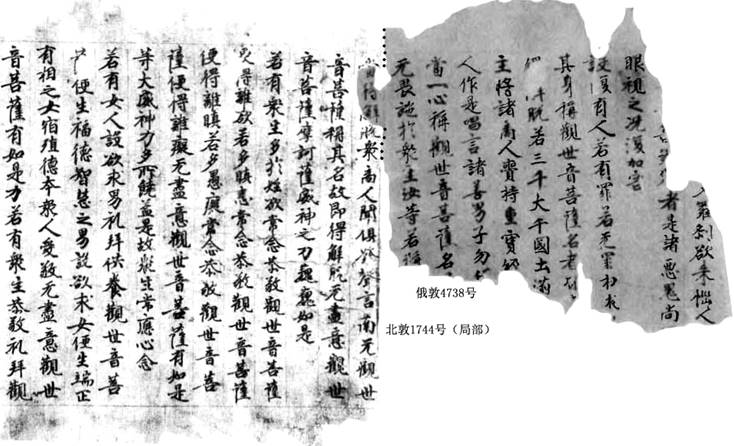 羅刹欲来惱人
者是諸惡鬼尚
眼視之况復加害
設復有人若有罪若无罪杻
其身稱觀世音菩薩名者
脱若三千大千國土滿
主將諸商人賫持重寳
人作是唱言諸善男子勿
當一心稱觀世音菩薩名
无畏施於衆生汝等若稱
當得解脱衆商人聞俱發聲言南无觀世
音菩薩稱其名故即得解脱无盡意觀世
音菩薩摩訶薩威神之力巍巍如是
若有衆生多於婬欲常念恭敬觀世音菩薩
便得離欲若多瞋恚常念恭敬觀世音菩薩
便得離瞋若多愚癡常念恭敬觀世音菩
薩便得離癡无盡意觀世音菩薩有如是
等大威神力多所饒益是故衆生常應心念
若有女人設欲求男礼拜供養觀世音菩
便生福德智慧之男設欲求女便生端正
有相之女宿殖德本衆人愛敬无盡意觀世
音菩薩有如是力若有衆生恭敬礼拜觀
俄敦4738号
北敦1744号（局部）